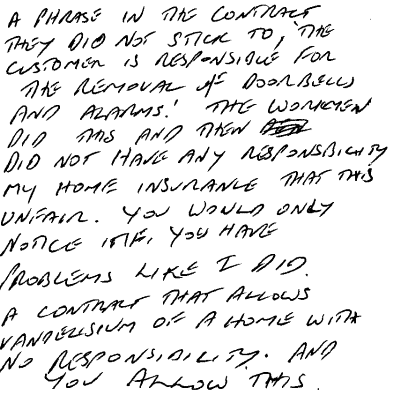 A PHRASE IN THE CONTRACT
THEY DID NOT STICK TO, 'THE
CUSTOMER IS RESPONSIBLE FOR
THE REMOVAL OF DOORBELLS
AND ALARMS.' THE WORKMEN
DID THIS AND THEN
DID NOT HAVE ANY RESPONSIBILITY
MY HOME INSURANCE THAT THIS
UNFAIR. YOU WOULD ONLY
NOTICE IF YOU HAVE
PROBLEMS LIKE I DID.
A CONTRACT THAT ALLOWS
VANDELSIUM OF A HOME WITH
NO RESPONSIBILITY. AND
YOU ALLOW THIS.